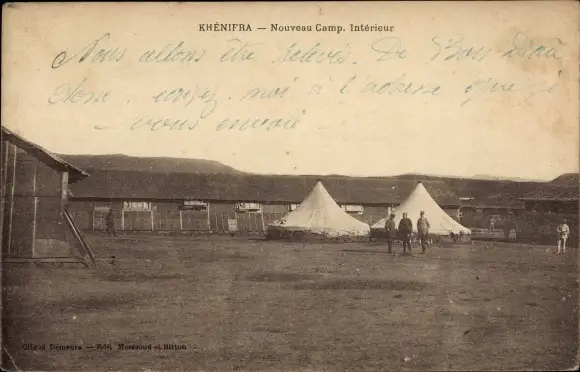 KHÉNIFRA — Nouveau Camp. Intérieur
Nous allons être relevés. De
écrivez. moi à l'adresse que je
vous envoie
Cliché Demeure — Edit. Messaoud et Bitton